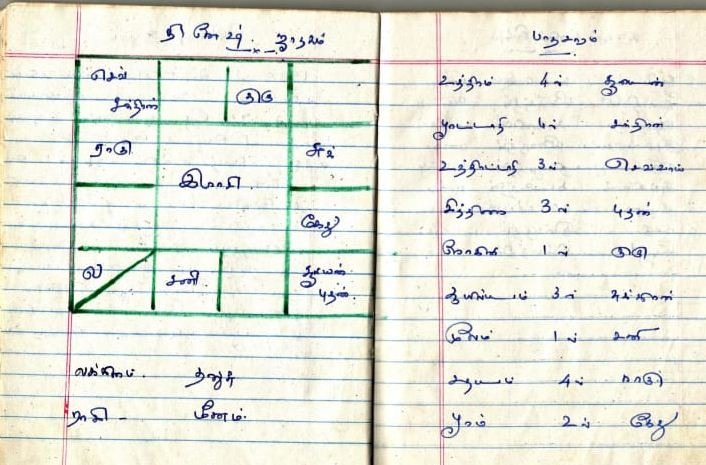 தினேஷ் ஜாதகம்
செவ்
சந்திரன்
குரு
ராகு
சுக்
இராசி
கேது
ல
சனி
சூரியன்
புதன்
லக்கினம். தனுசு
ராசி - மீனம்.
பாதசாரம்
உத்திரம் 4ல் சூரியன்
பூரட்டாதி 4ல் சந்திரன்
உத்திரட்டாதி 3ல் செவ்வாய்
சித்திரை 3ல் புதன்
ரோகிணி 1ல் குரு
ஆயில்யம் 3ல் சுக்கிரன்
மூலம் 1ல் சனி
சதயம் 4ல் ராகு
பூரம் 2ல் கேது